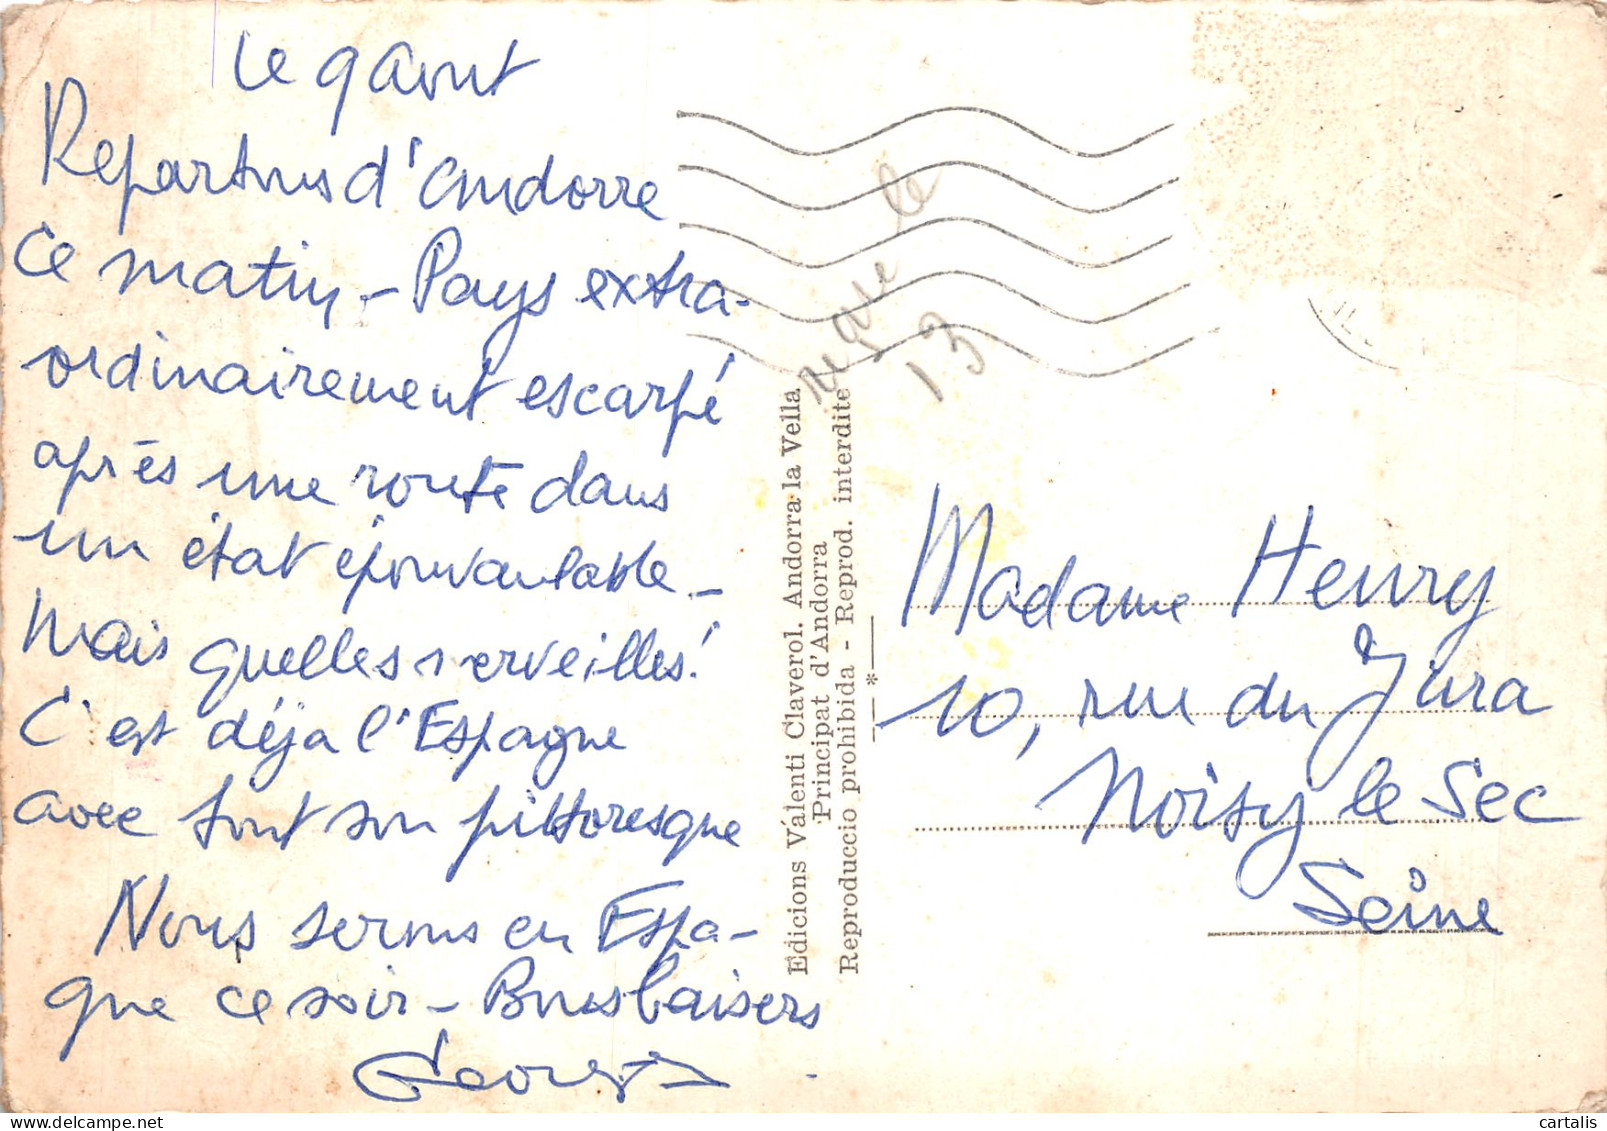 Le 9 Aout
Repartons d'Andorre
ce matin - Pays extra-
ordinairement escarpé
après une route dans
un état épouvantable -
Mais quelles merveilles!
C'est déja l'Espagne
avec tout son pittoresque
Nous serons en Espa-
gne ce soir - Bons baisers
Georges
reçue le
13
Edicions Valenti Claverol. Andorra la Vella
Principat d'Andorra
Reproduccio prohibida - Reprod. interdite
Madame Henry
10, rue du Jura
Noisy le Sec
Seine
cartalis